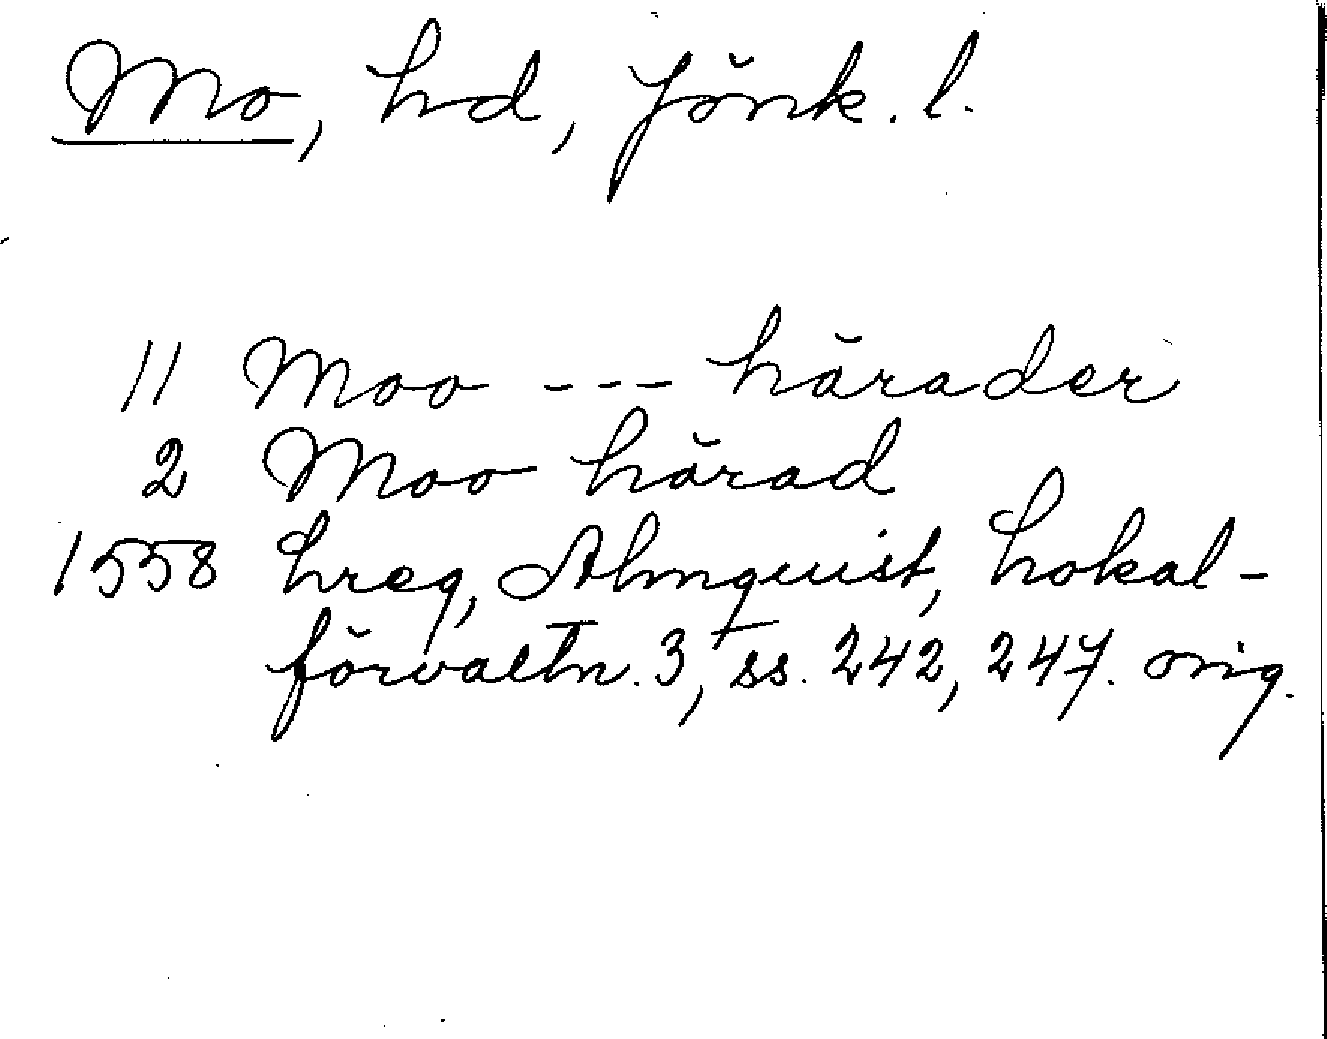 Mo, hd, Jönk. l.
11 Moo --- härader
2 Moo härad
1558 hreg, Almquist, Lokal-
förvaltn. 3, ss. 242, 247. orig.